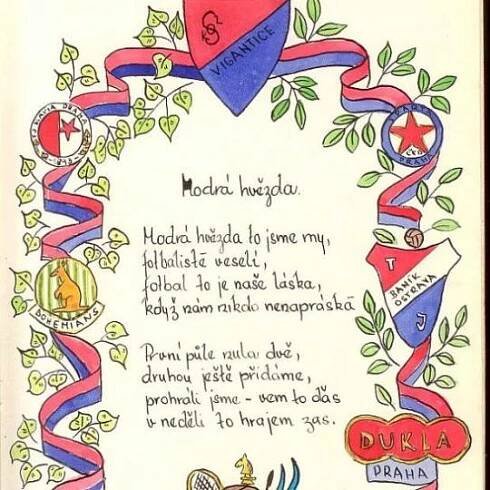 VIGANTICE
SLAVIA PRAHA
1893
SPARTA
PRAHA
Modrá hvězda.
Modrá hvězda to jsme my,
fotbalisté veselí,
fotbal to je naše láska,
když nám nikdo nenapráská
BOHEMIANS
T
BANÍK
OSTRAVA
J
První půle nula dvě,
druhou ještě přidáme,
prohráli jsme - vem to ďas
v neděli to hrajem zas.
DUKLA
PRAHA